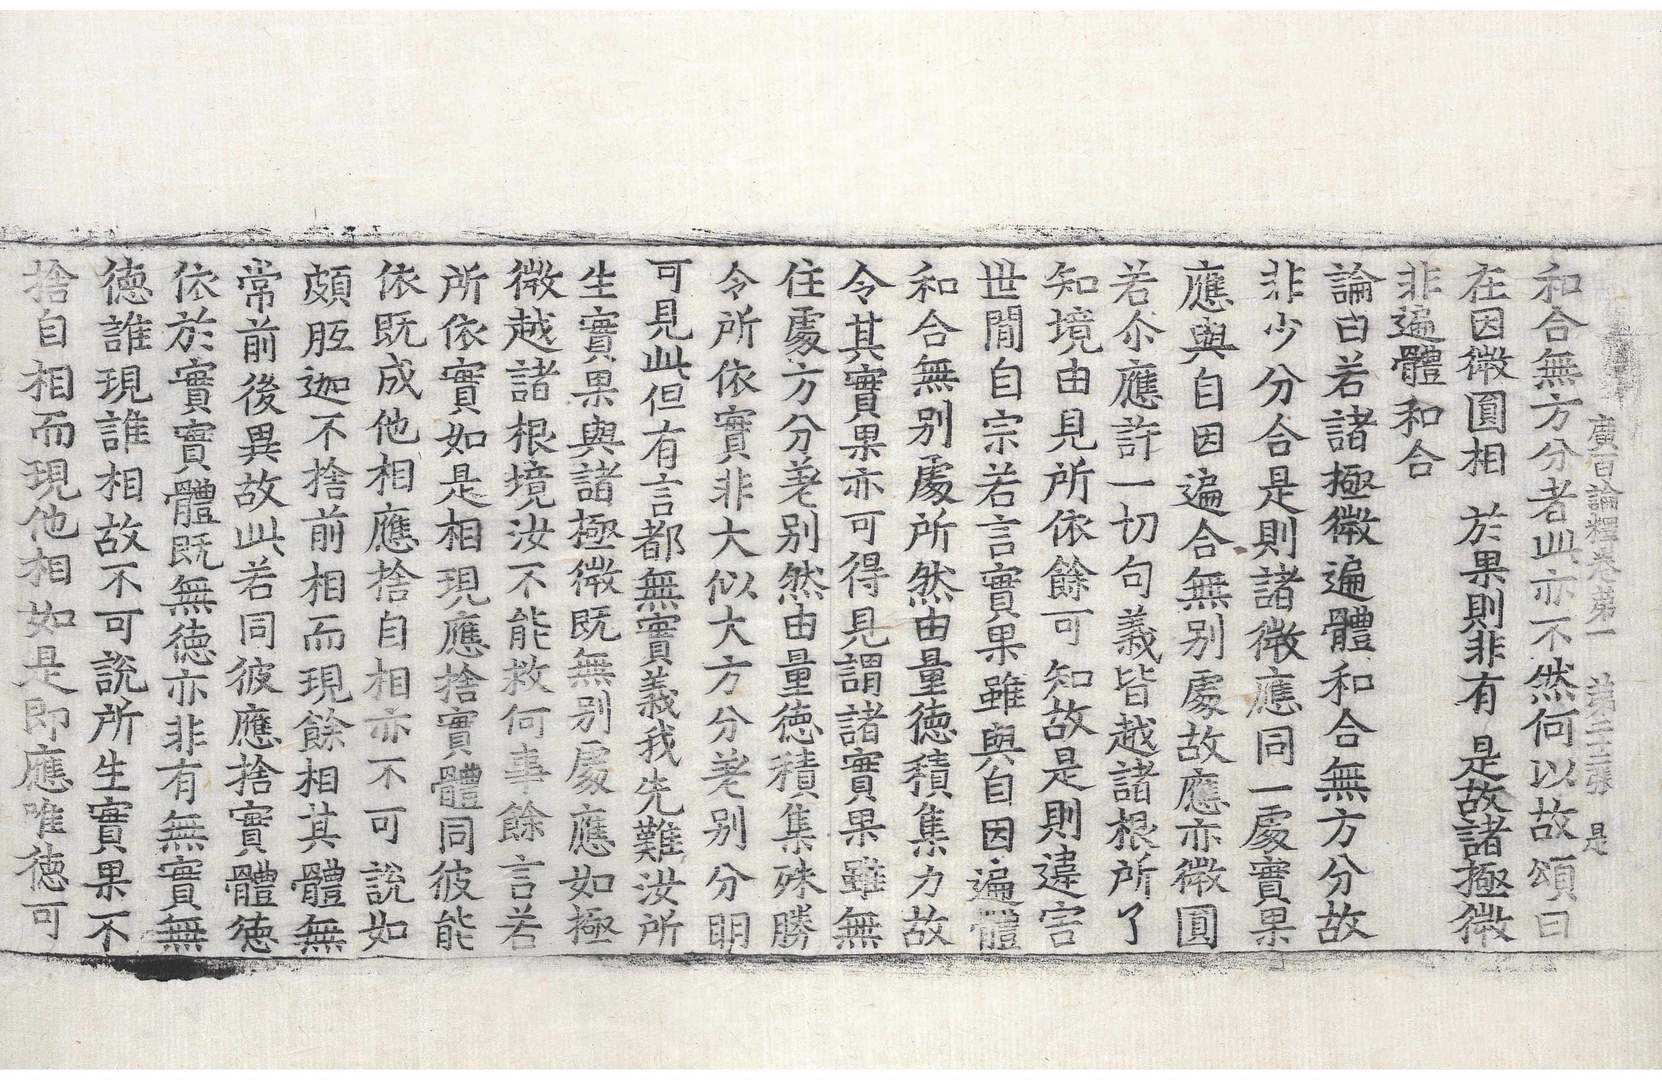 廣百論釋卷第一 第二三張 是
和合無方分者此亦不然何以故頌曰
在因微圓相 於果則非有 是故諸極微
非遍體和合
論曰若諸極微遍體和合無方分故
非少分合是則諸微應同一處實果
應與自因遍合無別處故應亦微圓
若尒應許一切句義皆越諸根所了
知境由見所依餘可知故是則違害
世間自宗若言實果雖與自因遍體
和合無別處所然由量德積集力故
令其實果亦可得見謂諸實果雖無
住處方分差別然由量德積集殊勝
令所依實非大似大方分差別分明
可見此但有言都無實義我先難汝所
生實果與諸極微既無別處應如極
微越諸根境汝不能救何事餘言若
所依實如是相現應捨實體同彼能
依既成他相應捨自相亦不可說如
頗胝迦不捨前相而現餘相其體無
常前後異故此若同彼應捨實體德
依於實實體既無德亦非有無實無
德誰現誰相故不可說所生實果不
捨自相而現他相如是即應唯德可